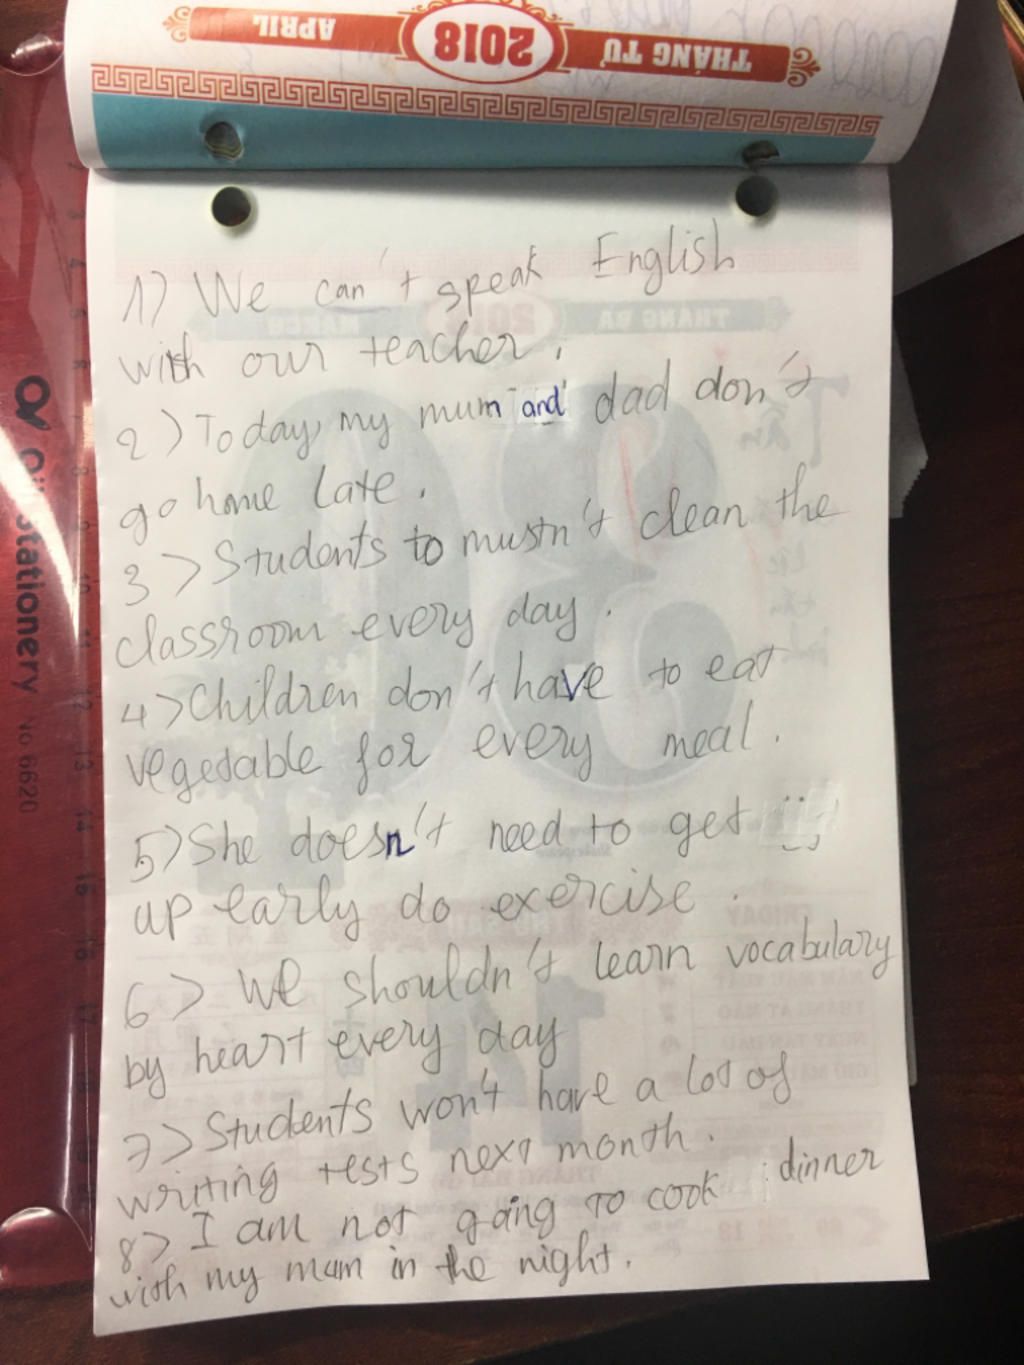 THÁNG TƯ 2018 APRIL
1) We can't speak English
with our teacher.
2) Today, my mum and dad don't
go home late.
3) Students to mustn't clean the
classroom every day.
4) Children don't have to eat
vegetable for every meal.
5) She doesn't need to get
up early do exercise.
6) We shouldn't learn vocabulary
by heart every day
7) Students won't have a lot of
writing tests next month.
8) I am not going to cook dinner
with my mum in the night.
Stationery No 6620
THÁNG BA MARCH
30
FRIDAY
14